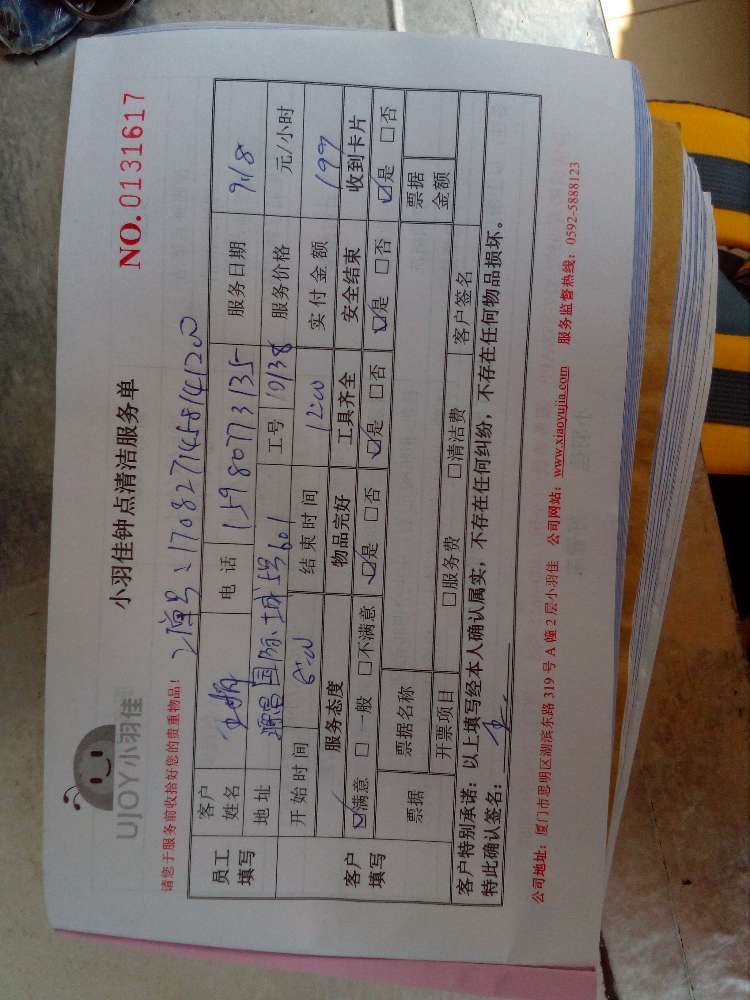 UJOY小羽佳
小羽佳钟点清洁服务单
NO.0131617
请您于服务前收拾好您的贵重物品!
员工填写 客户姓名 电话 15980773135 服务日期 9/8
地址 源昌国际城 601 工号 10138 服务价格 元/小时
开始时间 结束时间 12:00 实付金额 199
客户填写 服务态度 物品完好 工具齐全 安全结束 收到卡片
☑满意 □一般 □不满意 ☑是 □否 ☑是 □否 ☑是 □否 ☑是 □否
票据 票据名称 票据金额
开票项目 □服务费 □清洁费 客户签名
客户特别承诺:以上填写经本人确认属实,不存在任何纠纷,不存在任何物品损坏。
特此确认签名:
公司地址:厦门市思明区湖滨东路 319 号 A 幢 2 层小羽佳 公司网站:www.xiaoyujia.com 服务监督热线:0592-5888123